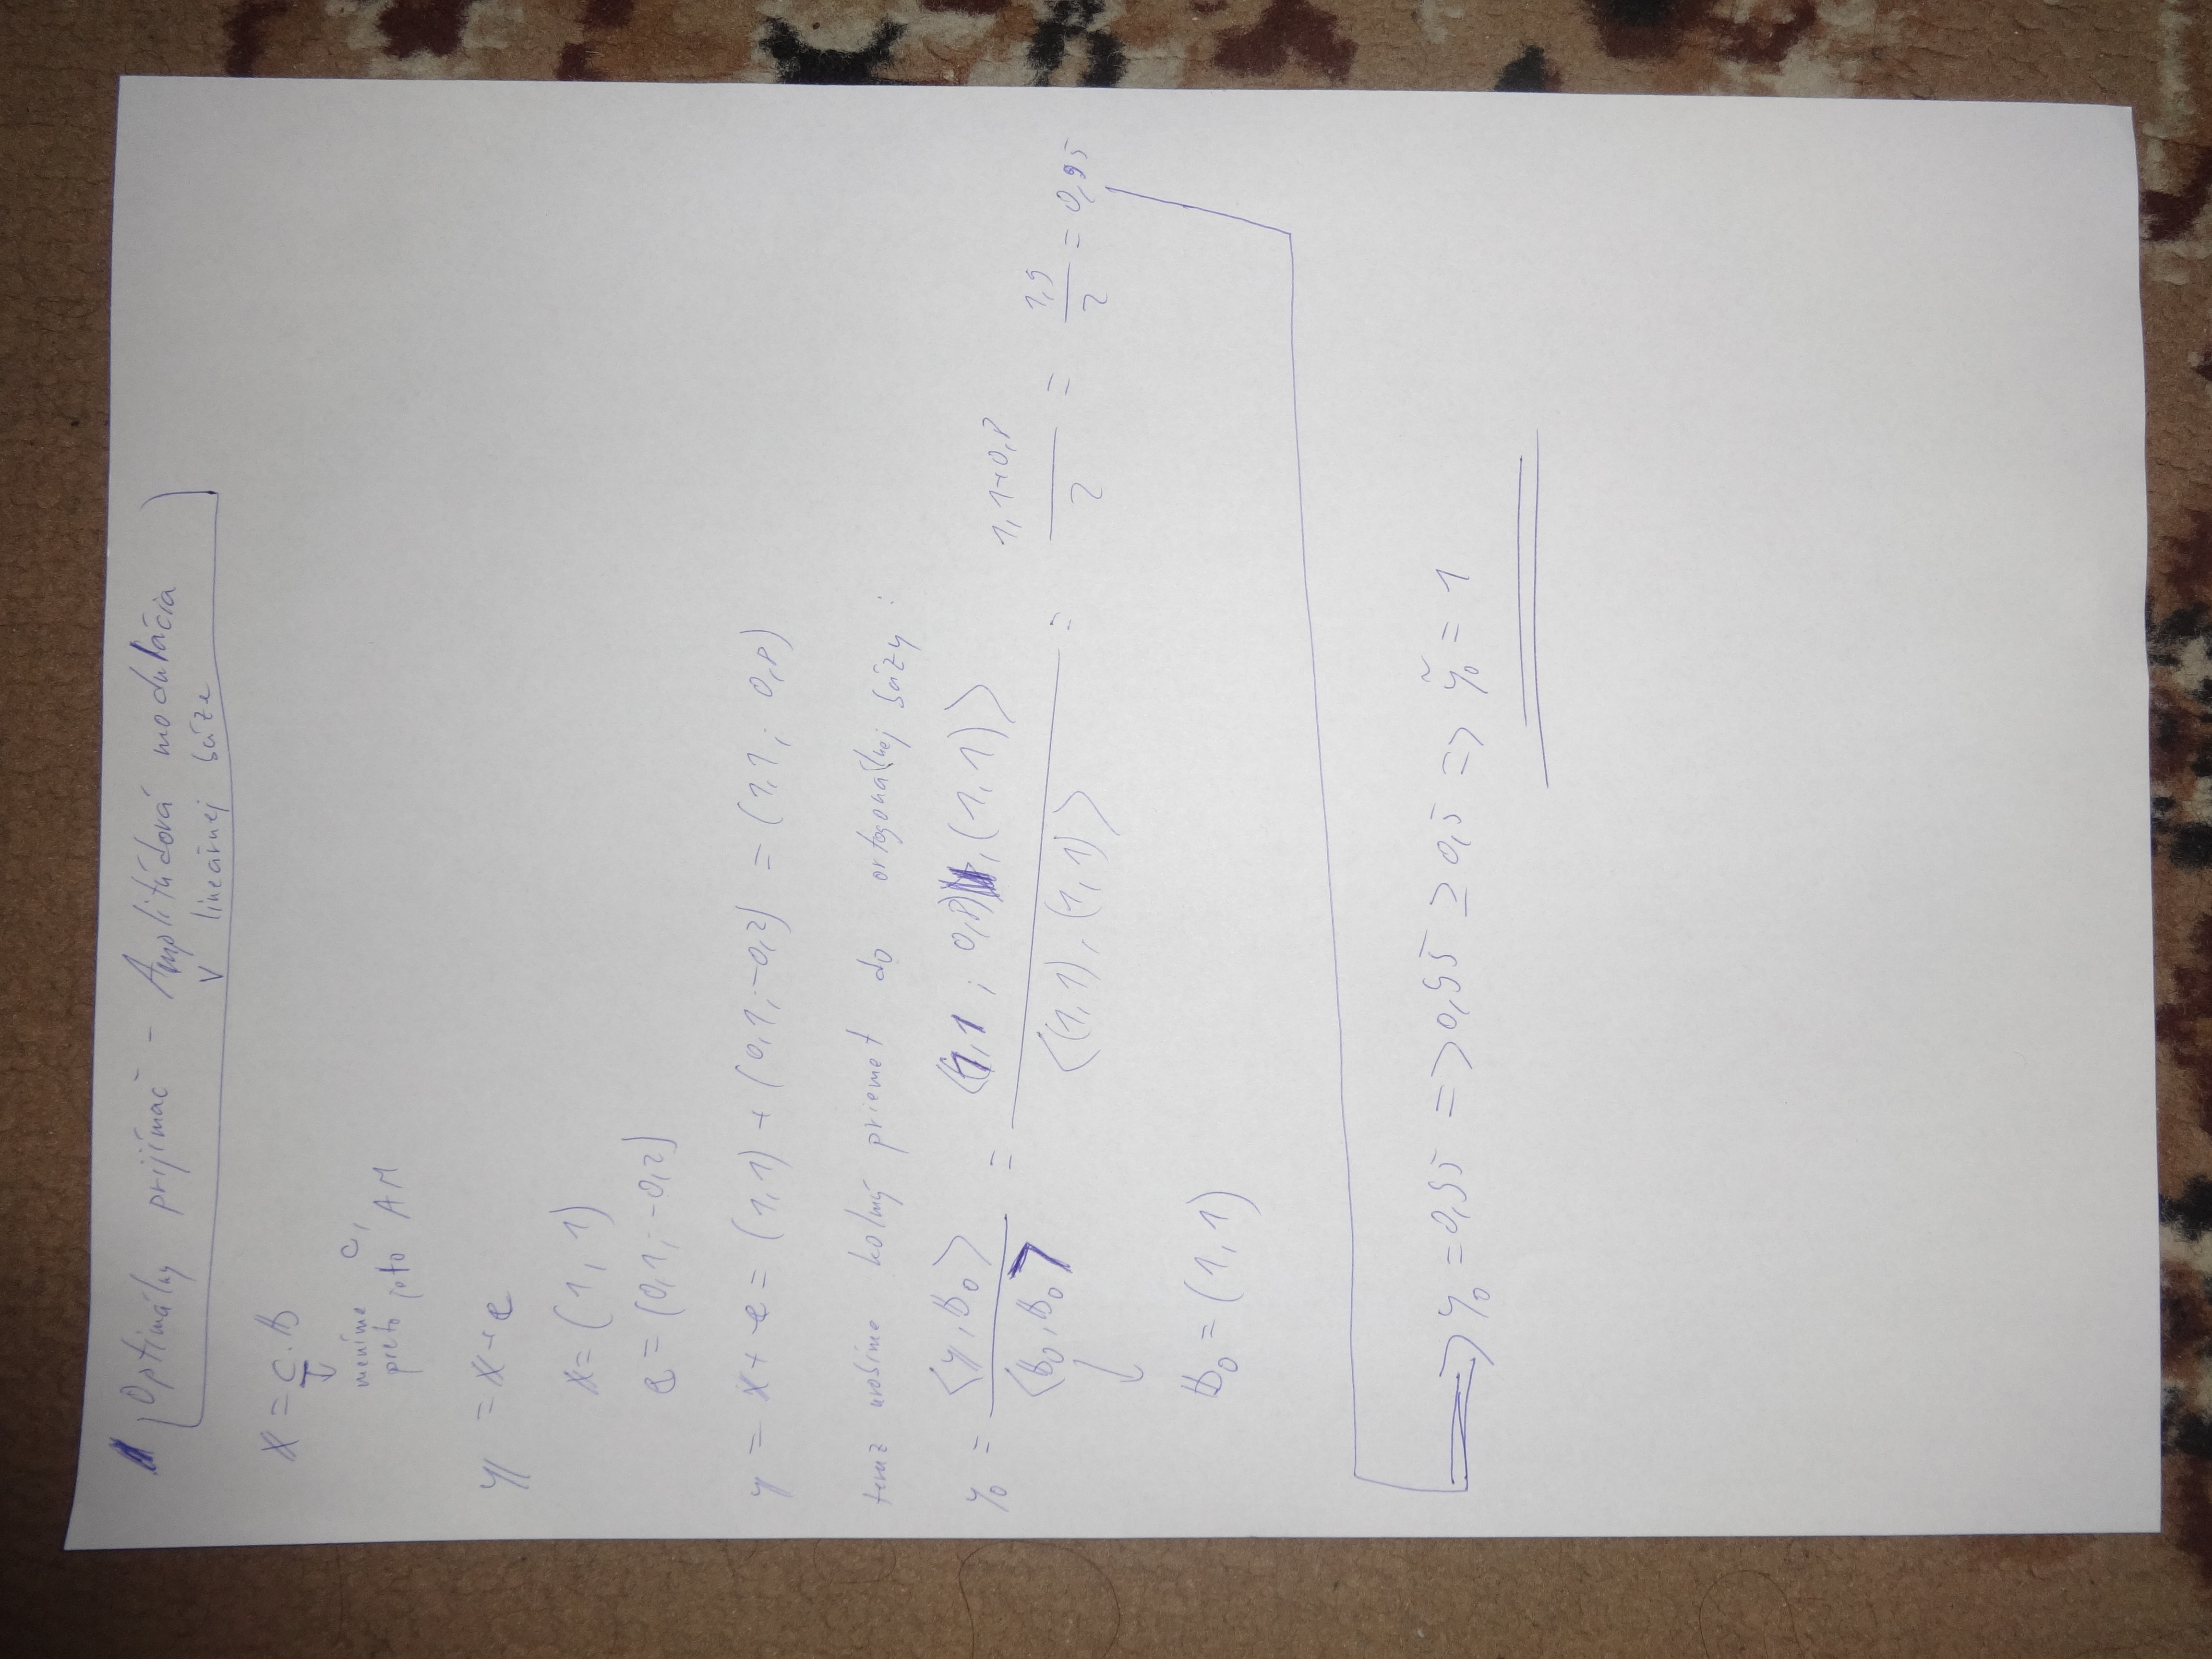 Optimálny prijímač - Amplitúdová modulácia
v lineárnej báze
x = c . b
meníme c,
preto je to AM
y = x + e
x = (1, 1)
e = (0,1; -0,2)
y = x + e = (1,1) + (0,1; -0,2) = (1,1; 0,8)
teraz urobíme kolmý priemet do ortogonálnej bázy :
y₀ = <y, b₀> / <b₀, b₀> = <(1,1 ; 0,8), (1,1)> / <(1,1), (1,1)> = 1,1+0,8 / 2 = 1,9 / 2 = 0,95
b₀ = (1, 1)
=> y₀ = 0,95 => 0,95 ≥ 0,5 => ỹ₀ = 1